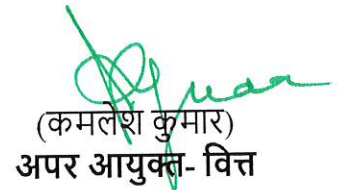 (कमलेश कुमार)
अपर आयुक्त- वित्त